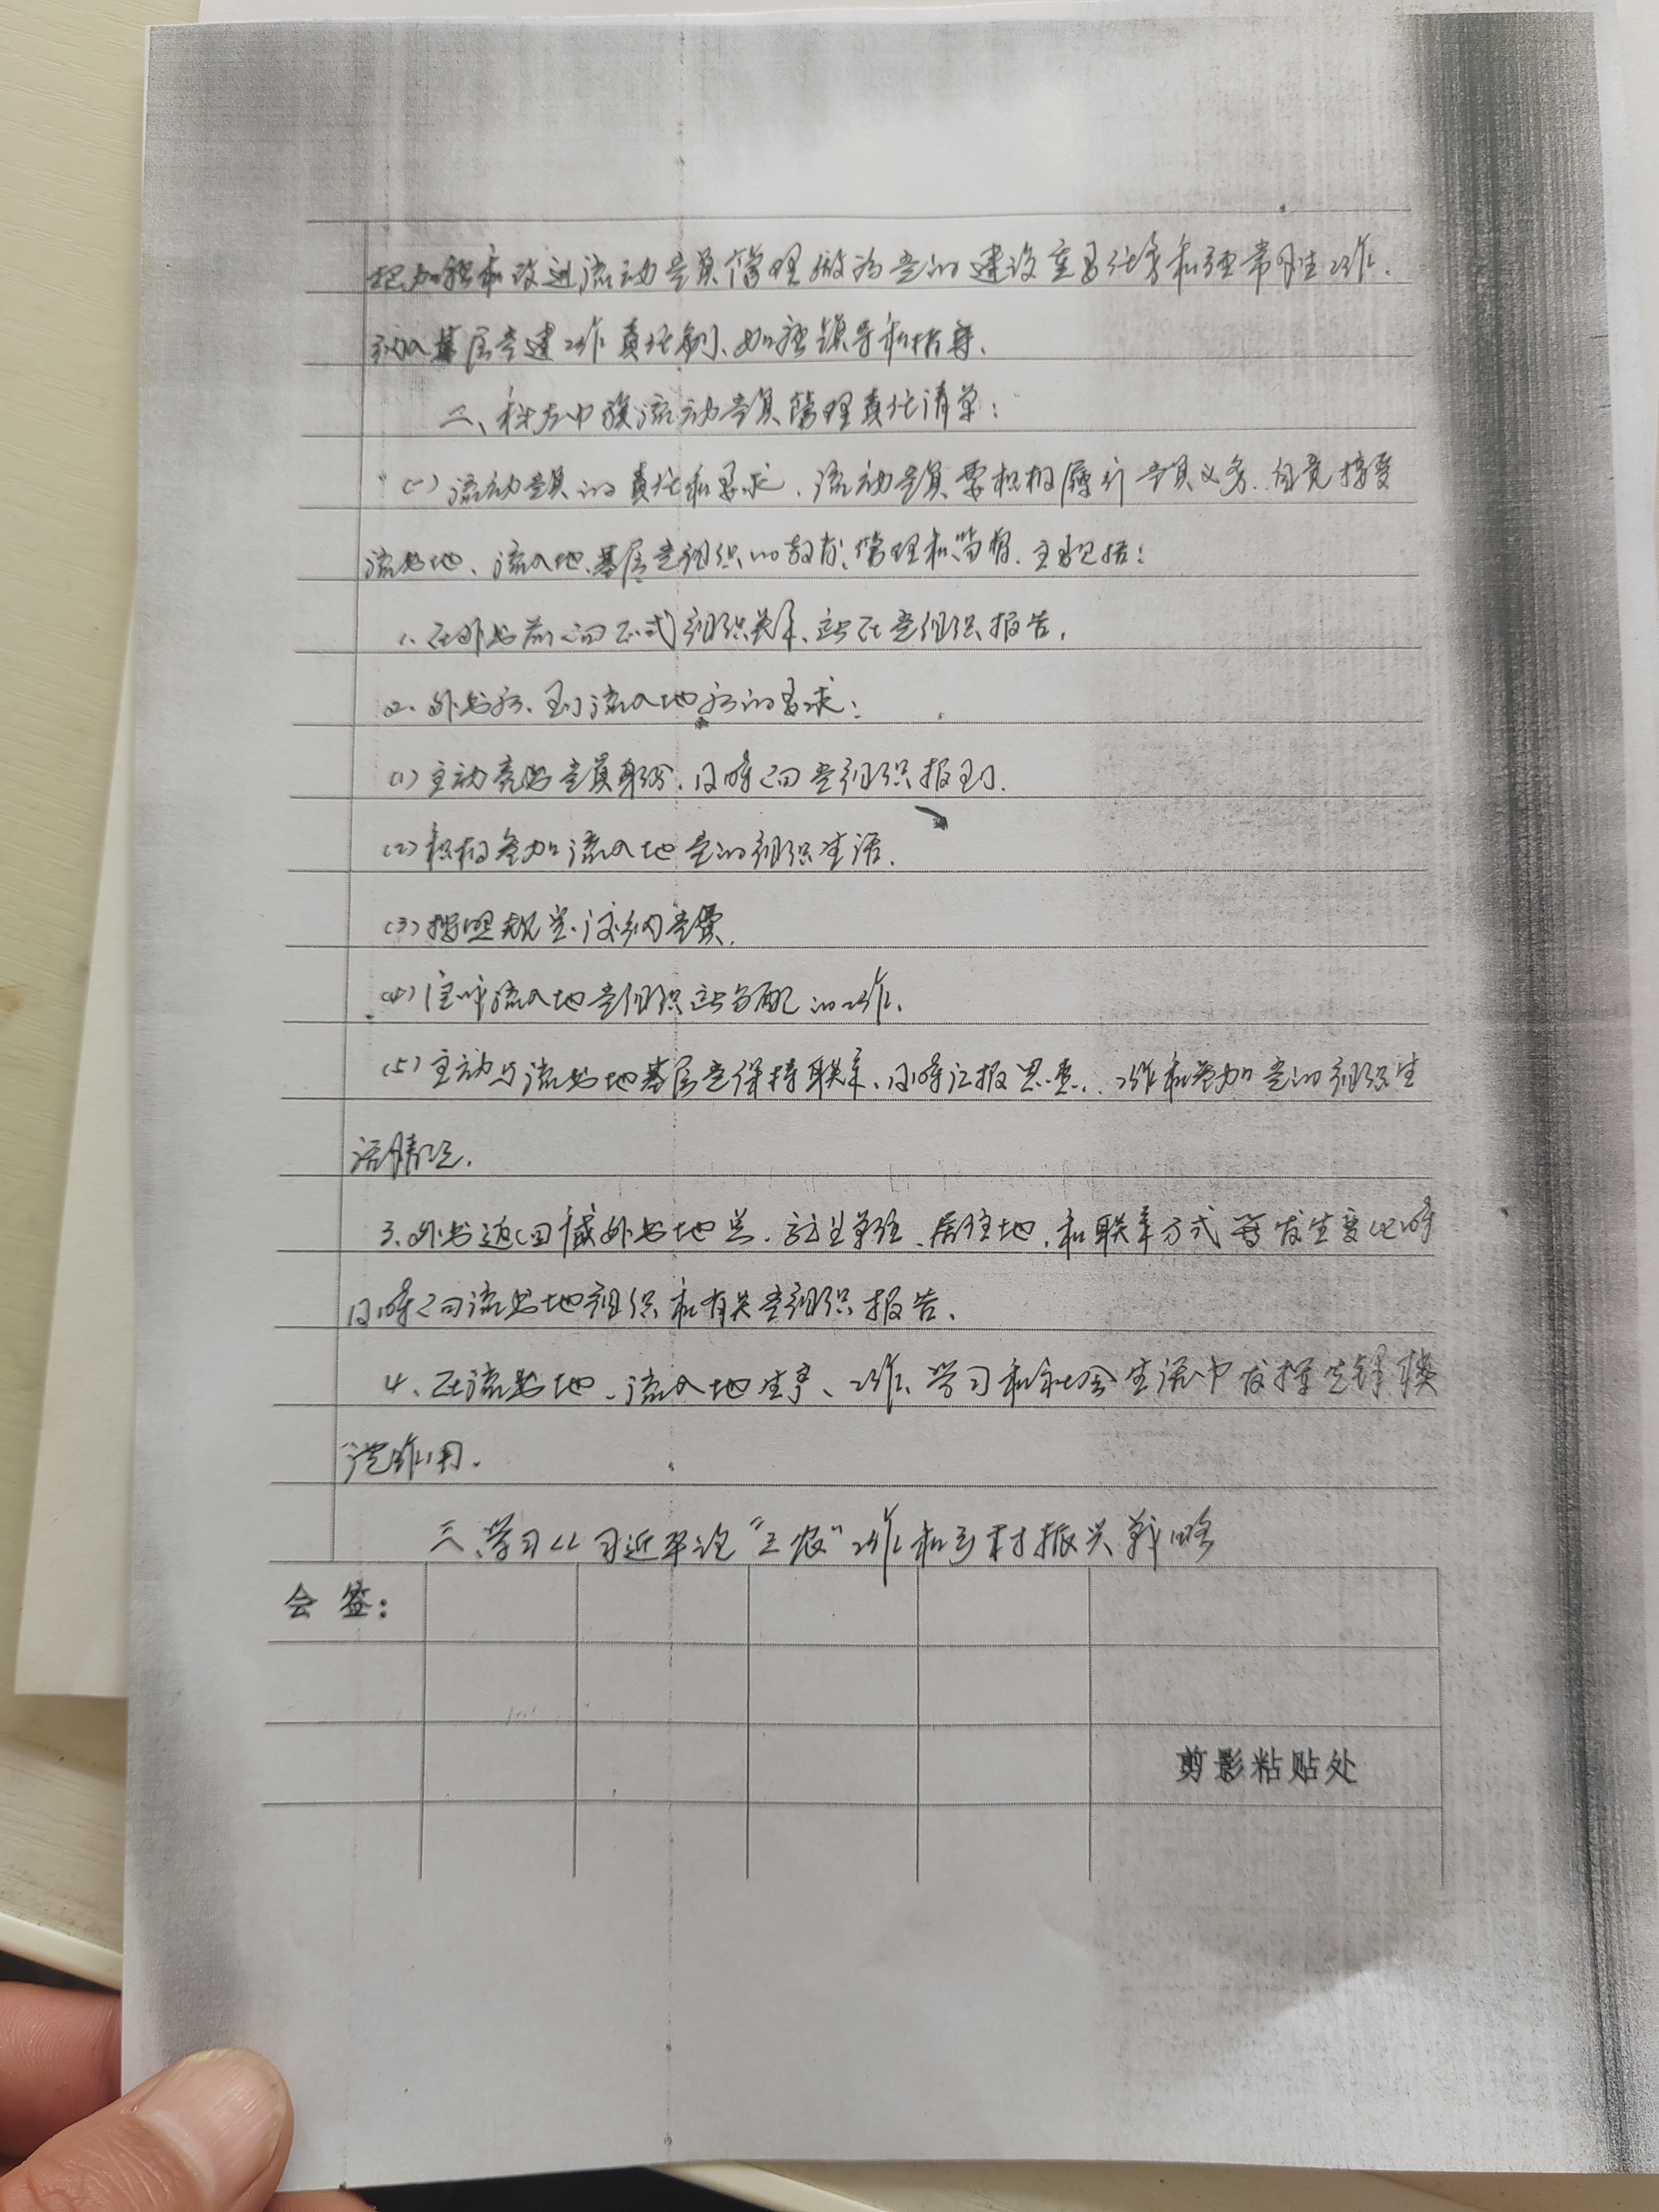 把加强和改进流动党员管理做为党的建设重要任务和经常性工作.
列入基层党建工作责任制、加强领导和指导、
二、科左中旗流动党员管理责任清单:
(一)流动党员的责任和要求、流动党员要积极履行党员义务.自觉接受
流出地、流入地基层党组织的教育、管理和监督.主要包括:
1、在外出前向正式组织关系、所在党组织报告,
2、外出后、到流入地后的要求:
(1)主动亮出党员身份、及时向党组织报到.
(2)积极参加流入地党的组织生活.
(3)按照规定交纳党费.
(4)完成流入地党组织所分配的工作、
(5)主动与流出地基层党保持联系、及时汇报思想、工作和参加党的组织生
活情况.
3、外出返回或外出地点、就业单位、居住地、和联系方式等发生变化时
及时向流出地组织和有关党组织报告、
4、在流出地、流入地生产、工作、学习和社会生活中发挥先锋模
范作用.
三、学习《习近平论“三农”工作和乡村振兴战略
会 签:
剪影粘贴处